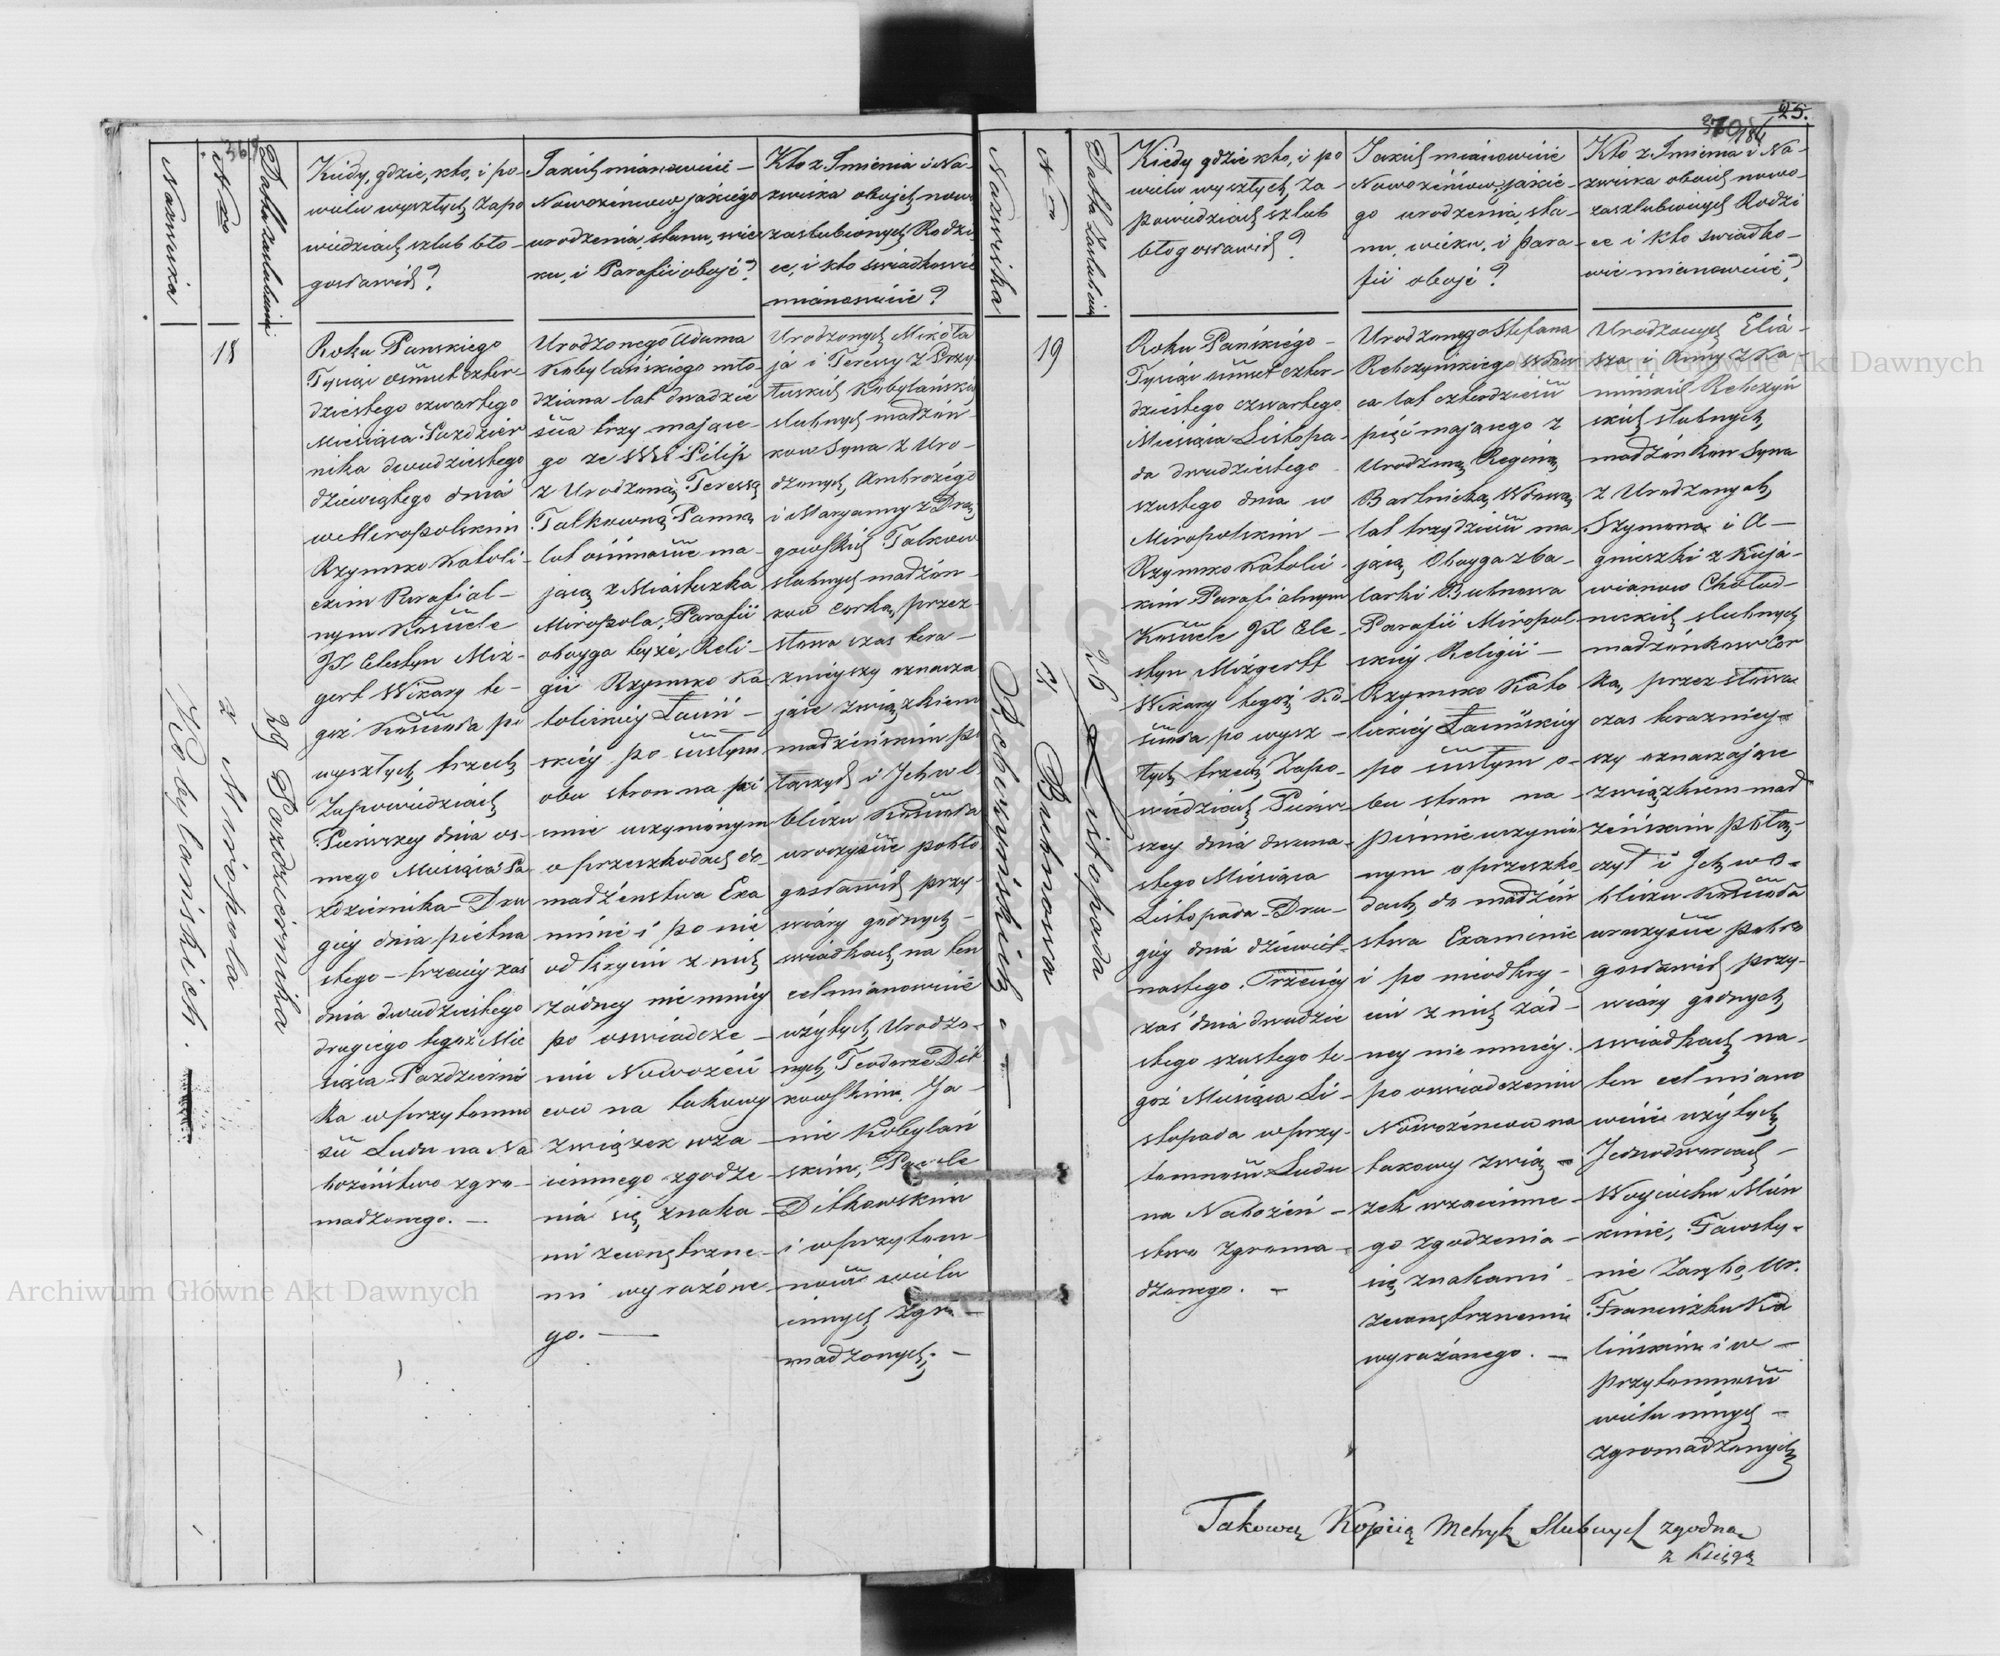 369
Nazwiska
Nro
Data zaslubin
Kiedy, gdzie, kto, i po
wielu wyszłych zapo
wiedziach szlub bło-
gosławił?
Jakich mianowicie -
Nowożeńcow jakiego
urodzenia, stanu, wie
ku, i Parafii oboje?
Kto z Imienia i Na-
zwiska obojch nowo
zaslubionych Rodzi
ce, i kto swiadkowie
mianowicie?
18
z Miropola
Kobylanskich.
29 Pazdziernika
Roku Panskiego
Tysiąc osmset czter-
dziestego czwartego
Miesiąca Pazdzier
nika dwudziestego
dziewiątego dnia
w Miropolskim
Rzymsko Katoli-
ckim Parafial-
nym Kosciele
JX Celestyn Miz-
gert Wikary te-
goż Koscioła po
wyszłych trzech
Zapowiedziach
Pierwszey dnia os-
mego Miesiąca Pa
zdziernika - Dru
giey dnia pietna
stego - trzeciey zas
dnia dwudziestego
drugiego tegoż Mie
siąca Pazdzierni
ka w przytomno
sci Ludu na Na
bożeństwo zgro-
madzonego. -
Urodzonego Adama
Kobylańskiego mło-
dziana lat dwadzie
scia trzy mające-
go ze Wsi Pilip
z Urodzoną Teressą
Talkowną Panną
lat osimnascie ma-
jącą z Miasteczka
Miropola, Parafii
oboyga teyże, Reli-
gii Rzymsko Ka
tolickiey Łaciń-
skiey po scisłym
obu stron na pi
smie uczynionym
o przeszkodach do
madżenstwa Exa
minie i po nie
odkryciu z nich
żadney nie mniey
po oswiadcze-
niu Nowożeń
cow na takowy
Związek wza
iemnego zgodze
nia się znaka
mi zewnętrzne-
mi wyrażone
go. -
Urodzonych Mikoła
ja i Teressy z Przy
łuskich Kobylańskich
slubnych madżon
kow Syna z Uro-
dzonych, Ambrożego
i Maryanny z Dra
gowskich Talkow
slubnych madżon-
kow corka, przez
słowa czas tera-
znieyszy oznacza
jące związkiem
madżeńskim po
łączył i Ich w o
bliczu Koscioła
uroczyscie pobło
gosławił przy
wiary godnych -
swiadkach na ten
cel mianowicie
użytych Urodzo-
nych, Teodorze Dit
kowskim, Ja-
nie Kobylań
skim, Pawle
Ditkowskim
i w przytom-
nosci wielu
innych zgro-
madzonych. -
25.
370
184
Nazwiska
Nro
Data zaslubin
Kiedy gdzie kto, i po
wielu wyszłych za-
powiedziach szlub
błogosławił?
Jakich mianowicie
Nowożeńcow, jakie
go urodzenia, sta-
nu, wieku, i para-
fii oboje?
Kto z Imienia i Na-
zwiska oboich nowo
zaszlubionych Rodzi
ce i kto swiadko-
wie mianowicie?
19
Z Buhnowa
26 Listopada
Roku Pańskiego -
Tysiąc osmset czter-
dziestego czwartego
Miesiąca Listopa-
da dwudziestego
szustego dnia w
Miropolskim -
Rzymsko Katolic-
kim Parafialnym
Kosciele JX Cele-
styn Mizgertt
Wikary tegoż Ko-
scioła po wysz-
łych trzech Zapo-
wiedziach Pierw-
szey dnia dwuna-
stego Miesiąca
Listopada - Dru-
giey dnia dziewięt-
nastego. Trzeciey
zaś dnia dwudzie
stego szustego te-
goż Miesiąca Li-
stopada w przy-
tomnosci Ludu
na Nabożeń-
stwo Zgroma-
dzonego. -
Urodzonego Stefana
Rebczyńskiego Wdow
ca lat czterdziesci
pięć mającego z
Urodzoną Reginą
Bartnicką, Wdową
lat trzydziesci ma
jącą, Oboyga z ba-
larki Buhnowa
Parafii Miropol
skiey Religii -
Rzymsko Kato
lickiey Łacińskiey
po scisłym o-
bu stron na
pismie uczynio
nym o przeszko
dach do madżeń
stwa Examinie
i po nieodkry-
ciu z nich żad-
ney nie mniey.
po oswiadczeniu
Nowożencow na
takowy zwią-
zek wzaiemne
go zgodzenia -
się znakami
zewnętrznemi
wyrażonego. -
Urodzonych Elia-
sza i Anny z Ka-
minskich Rebczyń
skich slubnych
madżonkow Syna
z Urodzonych
Szymona i A-
gnieszki z Kuja-
wianow Chołod-
nickich slubnych
madżonkow Cor
ka, przez słowa
czas terazniey-
szy oznaczające
związkiem mad
żeńskim połą-
czył i Ich w o-
bliczu Koscioła
uroczyscie pobło
gosławił przy-
wiary godnych
swiadkach na-
ten cel miano
wicie użytych
Jednodworcach -
Woyciechu
Franciszku Ka
lińskim i w -
przytomnosci
wielu innych -
zgromadzonych
Takową Kopiią Metryk Slubnych zgodną
z Księgą
Archiwum Główne Akt Dawnych
Archiwum Główne Akt Dawnych